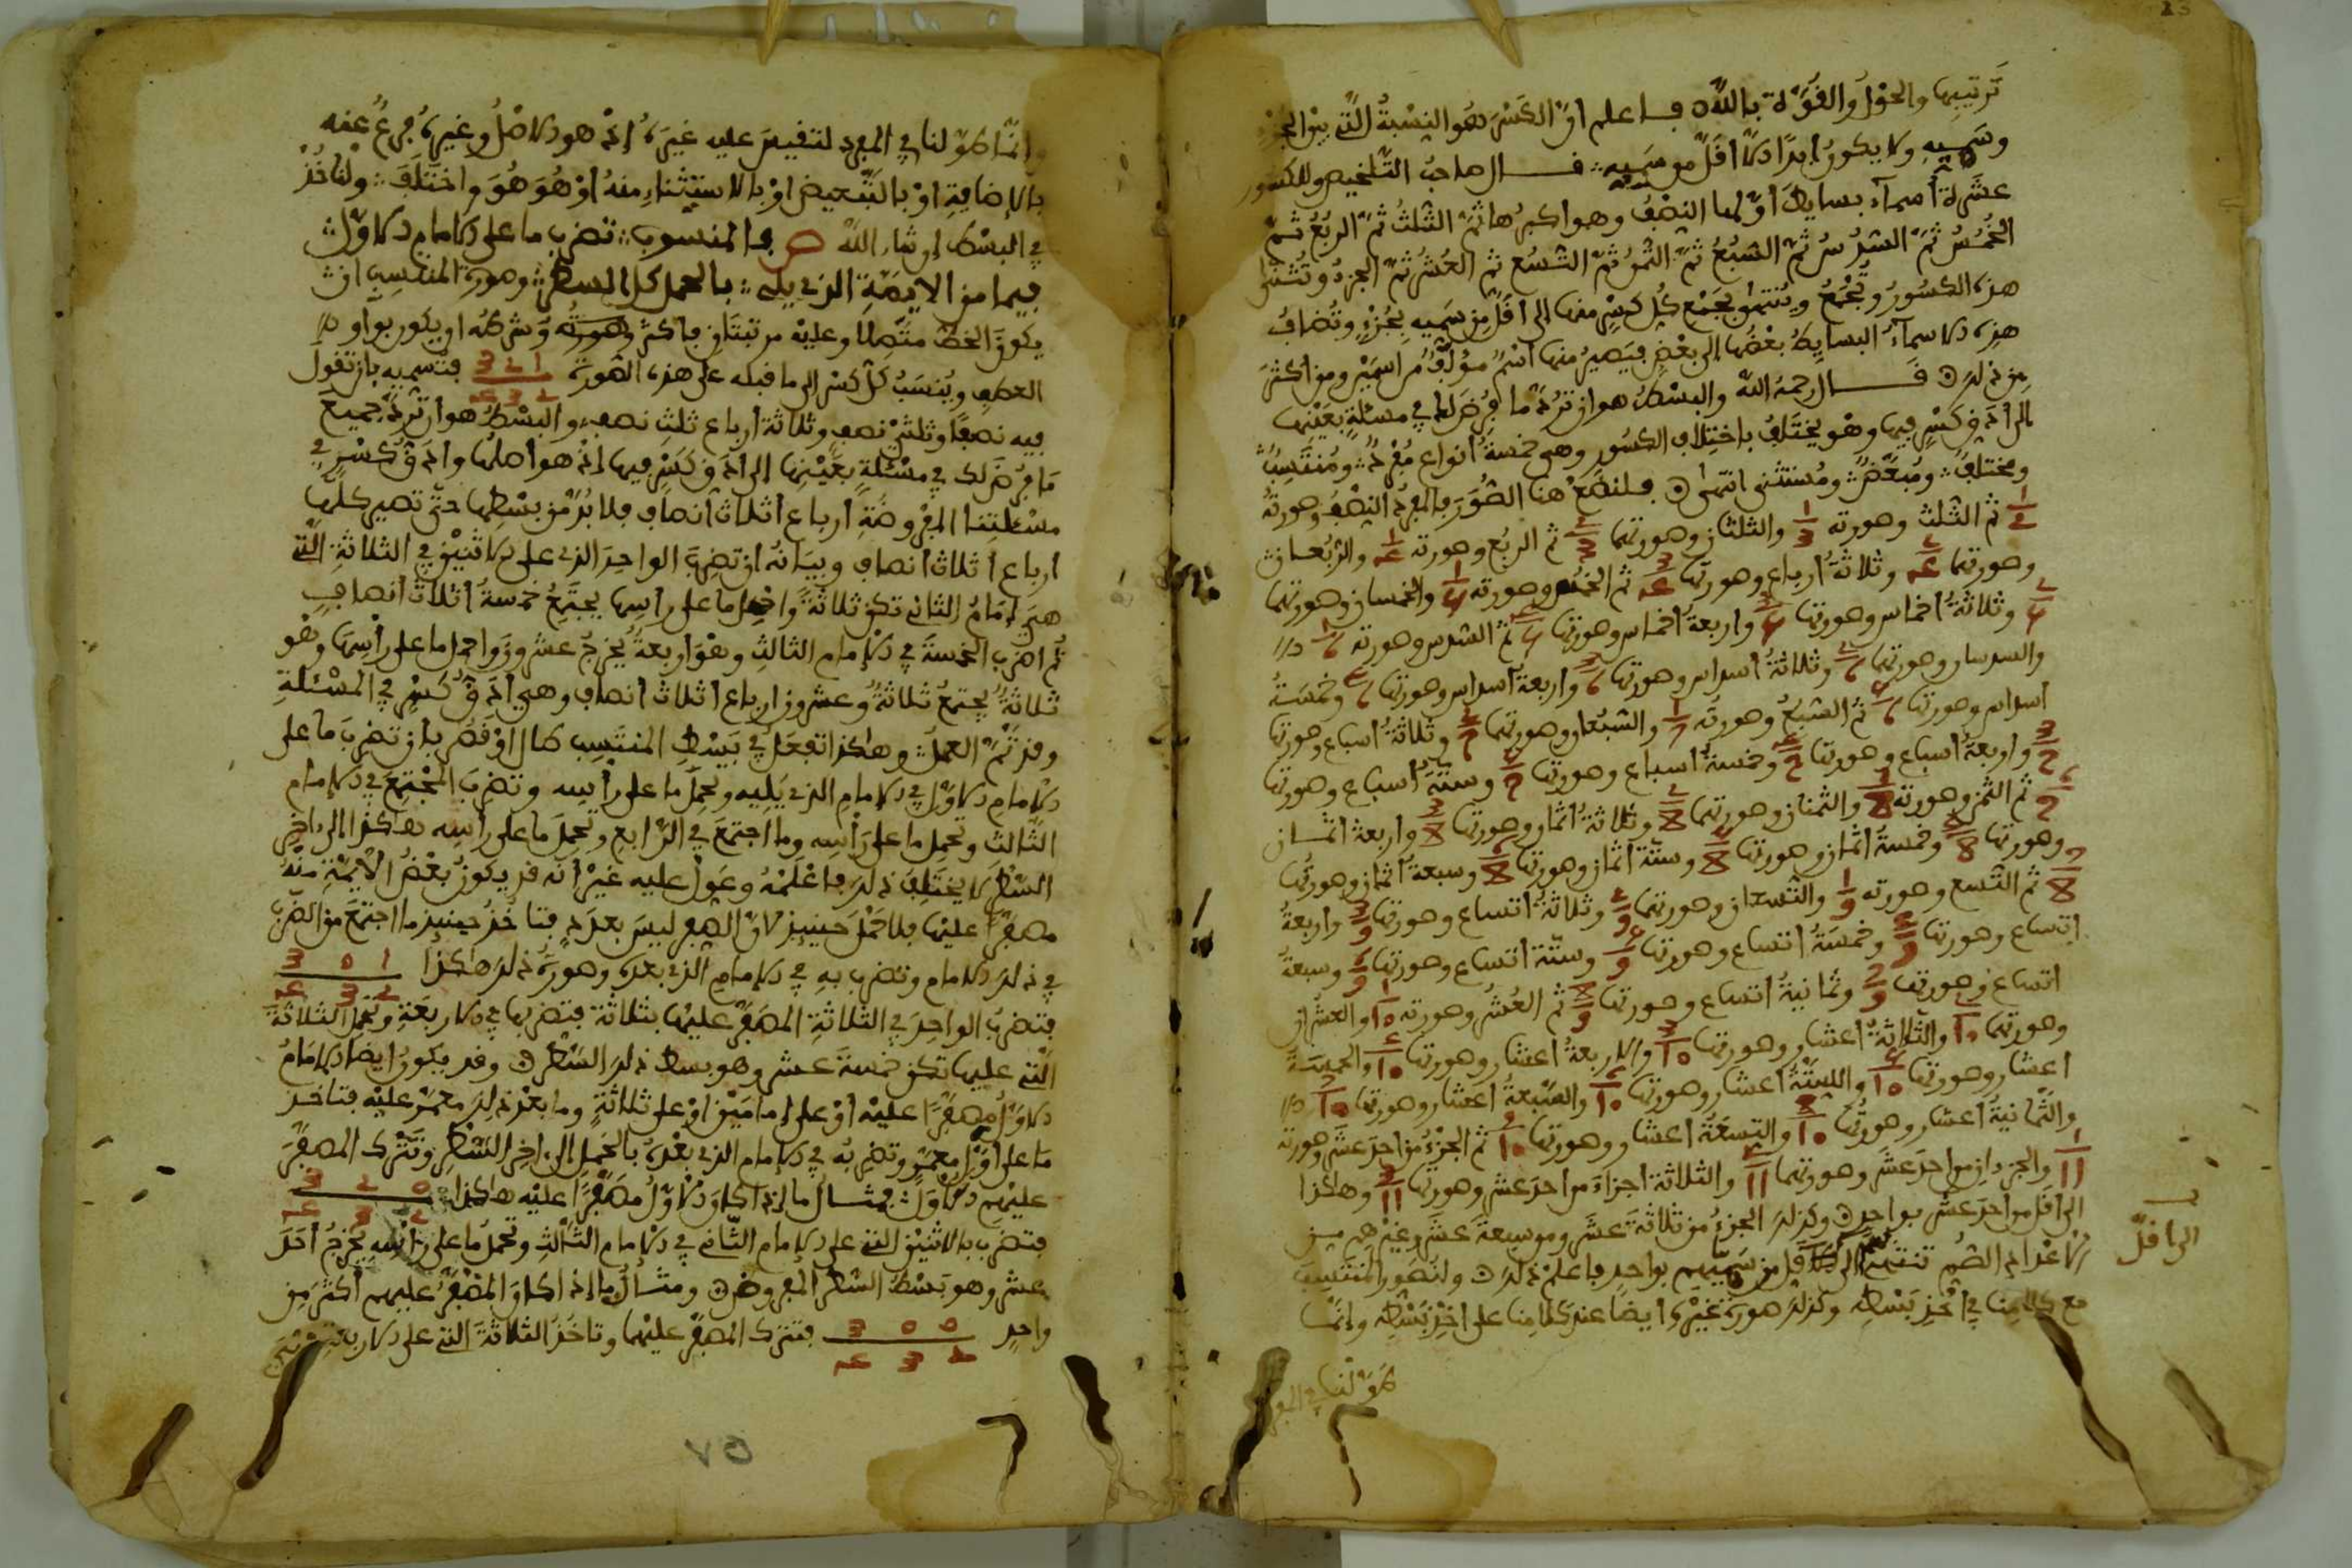 تَرتيبها والحَوْلُ والقُوَّة بالله فاعلم انّ الكَسْرَ هُوَ النِسْبةُ الَّتي بين الجُزْءِ
وسَمِيهِ ولا يكون ابدًا الا اقلَّ من سَمِيهِ قال صاحبُ التّلخيص وللكسور
عشرة أسماء بسايط اوّلها النصْفُ وهو اكبرُها ثمّ الثّلثُ ثمّ الرّبعُ ثمّ
الخُمُسُ ثمّ السّدُسُ ثمّ السّبُعُ ثمّ الثّمنُ ثمّ التّسُع ثم العُشُرُ ثمّ الجزءُ وتُثنّى
هذه الكسُورُ وتُجْمَعُ ويُنتهى بجَمْع كُلِ كَسْرٍ منها الى اقلَّ مِن سَمِيهِ بِجُزْءٍ وتُضافُ
هذه الاسماءُ البسايطُ بعْضُها الى بعْضٍ فيَصيرُ منها اسْمٌ مؤلّفٌ من اسمَيْن ومن اكثرَ
مِن ذلك قال رحمهُ الله والبسْطُ هو ان تردّ ما فُرِضَ لك في مسئلةٍ بعَيْنِها
الى ادَقِّ كَسْرٍ فيها وهْو يختَلفُ باختِلافِ الكسُور وهي خمسةُ انواع مُفْردٌ ومُنتَسِبٌ
ومختلفٌ ومُبَعَّضٌ ومُستثنى انتهى فلنضَعْ هنا الصُّوَرَ فالمفردُ النصْفُ وصورتهُ
1/2 ثم الثّلث وصورته 1/3 والثلثان وصورتهما 2/3 ثم الربُع وصورته 1/4 والرّبُعان
وصورتهما 2/4 وثلاثةُ أرباعٍ وصورتها 3/4 ثم الخمُس وصورته 1/5 والخمسان وصورتهما
2/5 وثلاثةُ اخماس وصورتها 3/5 واربعةُ اخماس وصورتها 4/5 ثمّ السّدس وصورته 1/6
والسدسان وصورتهما 2/6 وثلاثةُ اسداس وصورتها 3/6 واربعةُ اسداس وصورتها 4/6 وخمسَةُ
اسداس وصورتها 5/6 ثم السّبعُ وصورته 1/7 والسّبُعان وصورتهما 2/7 وثلاثةُ اسباع وصورتها
3/7 واربعةُ اسباع وصورتها 4/7 وخمسةُ اسباع وصورتها 5/7 وستةُ أسباع وصورتها
6/7 ثم الثّمن وصورته 1/8 والثّمنان وصورتهما 2/8 وثلاثةُ اثمان وصورتها 3/8 واربعة اثمان
وصورتها 4/8 وخمسةُ اثمان وصورتها 5/8 وستّة اثمان وصورتها 6/8 وسبعةُ اثمان وصورتُها
7/8 ثم التّسع وصورته 1/9 والتّسعان وصورتهما 2/9 وثلاثةُ اتساع وصورتها 3/9 واربعةُ
اتساع وصورتها 4/9 وخمسَةُ اتساع وصورتها 5/9 وستّة اتساع وصورتها 6/9 وسبعةُ
اتساع وصورتها 7/9 وثمانيةُ اتساع وصورتها 8/9 ثم العُشُر وصورته 1/10 والعشران
وصورتهما 2/10 والثّلاثةُ اعشار وصورتها 3/10 والاربعةُ اعشار وصورتها 4/10 والخمسَةُ
اعشار وصورتها 5/10 والستّةُ اعشار وصورتها 6/10 والسّبعةُ اعشار وصورتها 7/10
والثّمانيةُ اعشار وصورتُها 8/10 والتسعَةُ اعشار وصورتها 9/10 ثم الجُزءُ من احدَ عشَرَ وصورته
1/11 والجزءان من احدَ عشَرَ وصورتهما 2/11 والثلاثة اجزاءَ من احدَ عشر وصورتها 3/11 وهاكذا
الى اقلّ من احدَ عشَر بواحدٍ وكذلك الجزءُ من ثلاثةَ عشَرَ ومن سبعةَ عشَرَ وغيرهم من
الاعْداد الصُّم تنتهي الى اقل من سَمِيّهم بواحدٍ فاعلمْ ذلك ولنُصَور المنتَسِبَ
مع كلامنا في اخْذِ بَسْطِه وكذلك صورة غيْرِه ايضا عند كلامنا على اخْذِ بَسْطِه وانّما
الى اقلّ
طوّلنا في المفرد
وانّما طوّلنا في المفرد لتقيسَ عليه غيرَه إذْ هو الاصْلُ وغيرُه فرعٌ عنه
بالإضافةِ اوْ بالتّبعيض اوْ بالاستِثناءِ منهُ أوْ هُوَ هُوَ واختَلَفَ ولْنَاخُذْ
في البسْط إن شاء اللّٰه ص فالمنسوب تضرب ما على الامامِ الاوّل
فيما من الايمّةِ الذي يليه بالحمل كل السطر وصورةُ المنتسِب ان
يكونَ الخطُّ متّصلًا وعليْه مرتبتَان فاكثر وشرطُه ان يكون بواو
العطفِ ويُنسَبُ كلُّ كسْرٍ الى ما قبله على هذه الصّورة 1 2 3 / 2 3 4 فتُسميهِ بان تقول
فيه نصفٌ وثلثيْ نصفٍ وثلاثة أرباع ثلثِ نصفٍ والبسْطُ هو ان تردّ جميع
مَا فُرِضَ لك في مسْئلةٍ بعَيْنِها إلى ادَقِّ كَسْرٍ فيها اذْ هو اصلُها وادَقُّ كسْرٍ في
مسْئلتِنا المفروضَةِ أرباع أثلاث أنصافٍ فلا بُدَّ مّن بسْطِها حتّى تصير كلُّها
ارباع أثلاث أنصافٍ وبَيَانُه ان تَضْرِبَ الواحِدَ الذي على الاثنيْن في الثّلاثةِ الَّتي
هِيَ إمَامُ الثاني تكن ثلاثةً واحْمِل ما على راسِها يجتَمِعُ خمسَةُ أثلاث أنصافٍ
ثم اضْرِب الخمسةَ في الإمام الثالثِ وهْوَ اربعةٌ يخرجُ عشرون واحمل ما على رأسِها وهْو
ثلاثةٌ يجتمعُ ثلاثةٌ وعشرون ارباع اثلاث انصاف وهي أدَقُّ كسْرٍ في المسْئلةِ
وقد تَمَّ العملُ وهٰكذا تفعَلُ في بَسْطِ المنتَسِبِ طال أوْ قَصُر بان تضرب ما على
الإمام الاوّل في الإمام الذي يَلِيه وتحْمِلَ ما على رأسِه وتضربَ المجْتمِعَ في الإمام
الثّالث وتحْمِل ما على رَأْسِه وما اجتَمَعَ في الرّابعِ وتحمِلَ ما على رأسِه هاكذا الى اخِرِ
السّطْر لا يختَلِفُ ذلك فاعْلمْهُ وعَوِّلْ عليه غيْر انّه قد يكونُ بعْضُ الأيمّةِ منْهُ
مصَفَّرًا عليْها فلا حَمْلَ حينيذٍ لانّ الصِفر ليسَ بعدَدٍ فتاخُذُ حينيذٍ ما اجتمَعَ من الضّرب
في ذلك الامام وتضرب بهِ في الإمام الذي بعدَه وصورَةُ ذلك هاكذا 1 0 3 / 2 3 4
فتضربُ الواحِدَ في الثّلاثةِ المصَفَّرِ عليْها بثلاثة فتضربها في الاربَعَةِ وتحملُ الثّلاثةَ
الّتي عليها تكن خمسةَ عشر وهو بسط ذلك السَّطْر وقد يكونُ ايضا الإمَامُ
الاوَّلُ مُصَفّرًا عليْه أوْ على إمامَيْن اوْ على ثلاثةٍ وما بعْدَ ذلك معمّر عليْه فتاخذ
مَا على اوّل معمّرٍ وتضرِبُه في الإمام الذي بعْدَهُ بالحمل الى ءاخِر السّطْر وتَتْرك المصَفَّرَ
عليْهم الاوَّل مثال ما إذا كانَ الاوّلُ مصَفَّرًا عليْه هاكذا 0 2 3 / 2 3 4
فتضرب بالاثنيْن التي على الإمام الثّاني في الإمام الثّالثِ وتحملُ ما على رأسِهِ يخْرُجُ أحَدَ
عشر وهو بَسْطُ السّطْر المفروض ومثالُ ما إذا كانَ المصَفَّرُ عليهم أكثَرَ مِن
واحدٍ 0 0 3 / 2 3 4 فتترك المصفّر عليْهما وتاخُذُ الثّلاثةَ التي على الاربعَةِ
٥٧